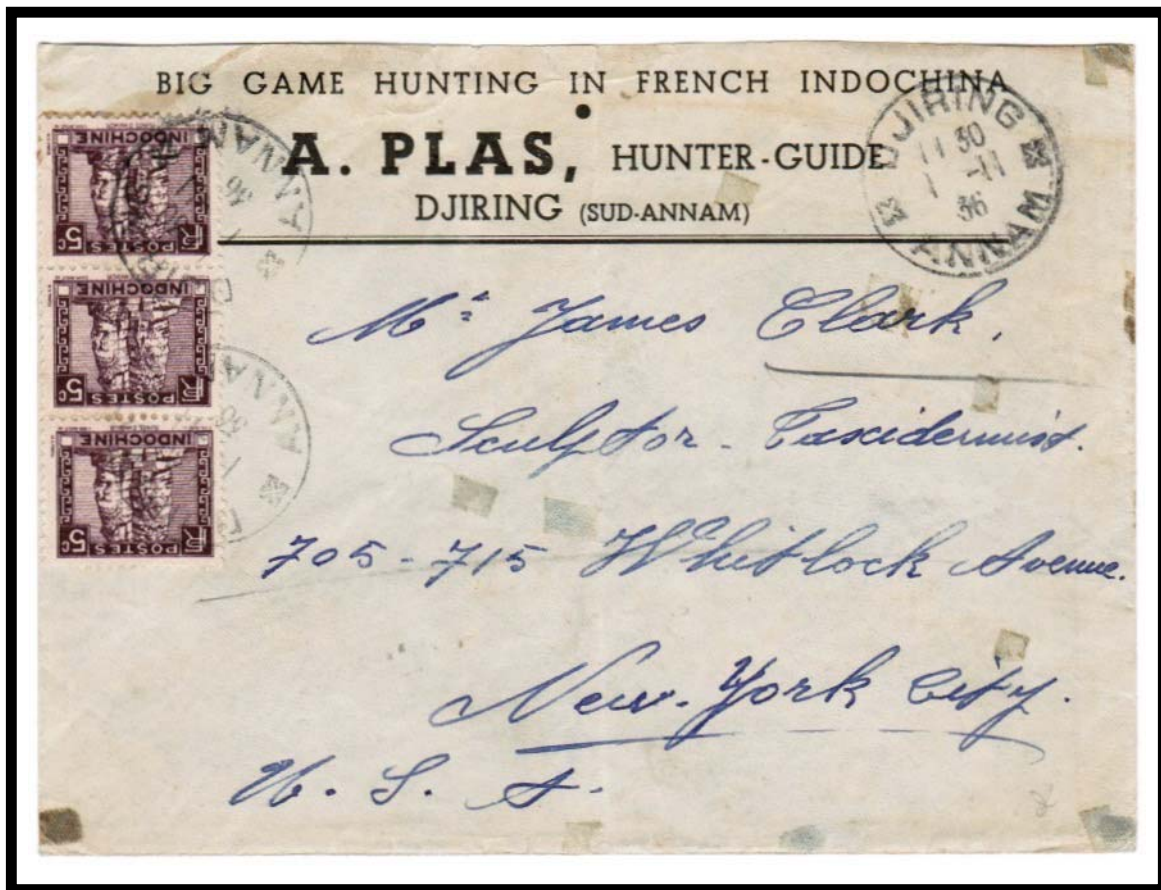 BIG GAME HUNTING IN FRENCH INDOCHINA
A. PLAS, HUNTER-GUIDE
DJIRING (SUD-ANNAM)
DJIRING
11 30
1 -11
36
ANNAM
INDOCHINE
POSTES
RF 5c
INDOCHINE
POSTES
RF 5c
INDOCHINE
POSTES
RF 5c
ANNAM
36
ANNAM
Mr James Clark,
Sculptor - Taxidermist.
705-715 Whitlock Avenue.
New-York City.
U. S. A.